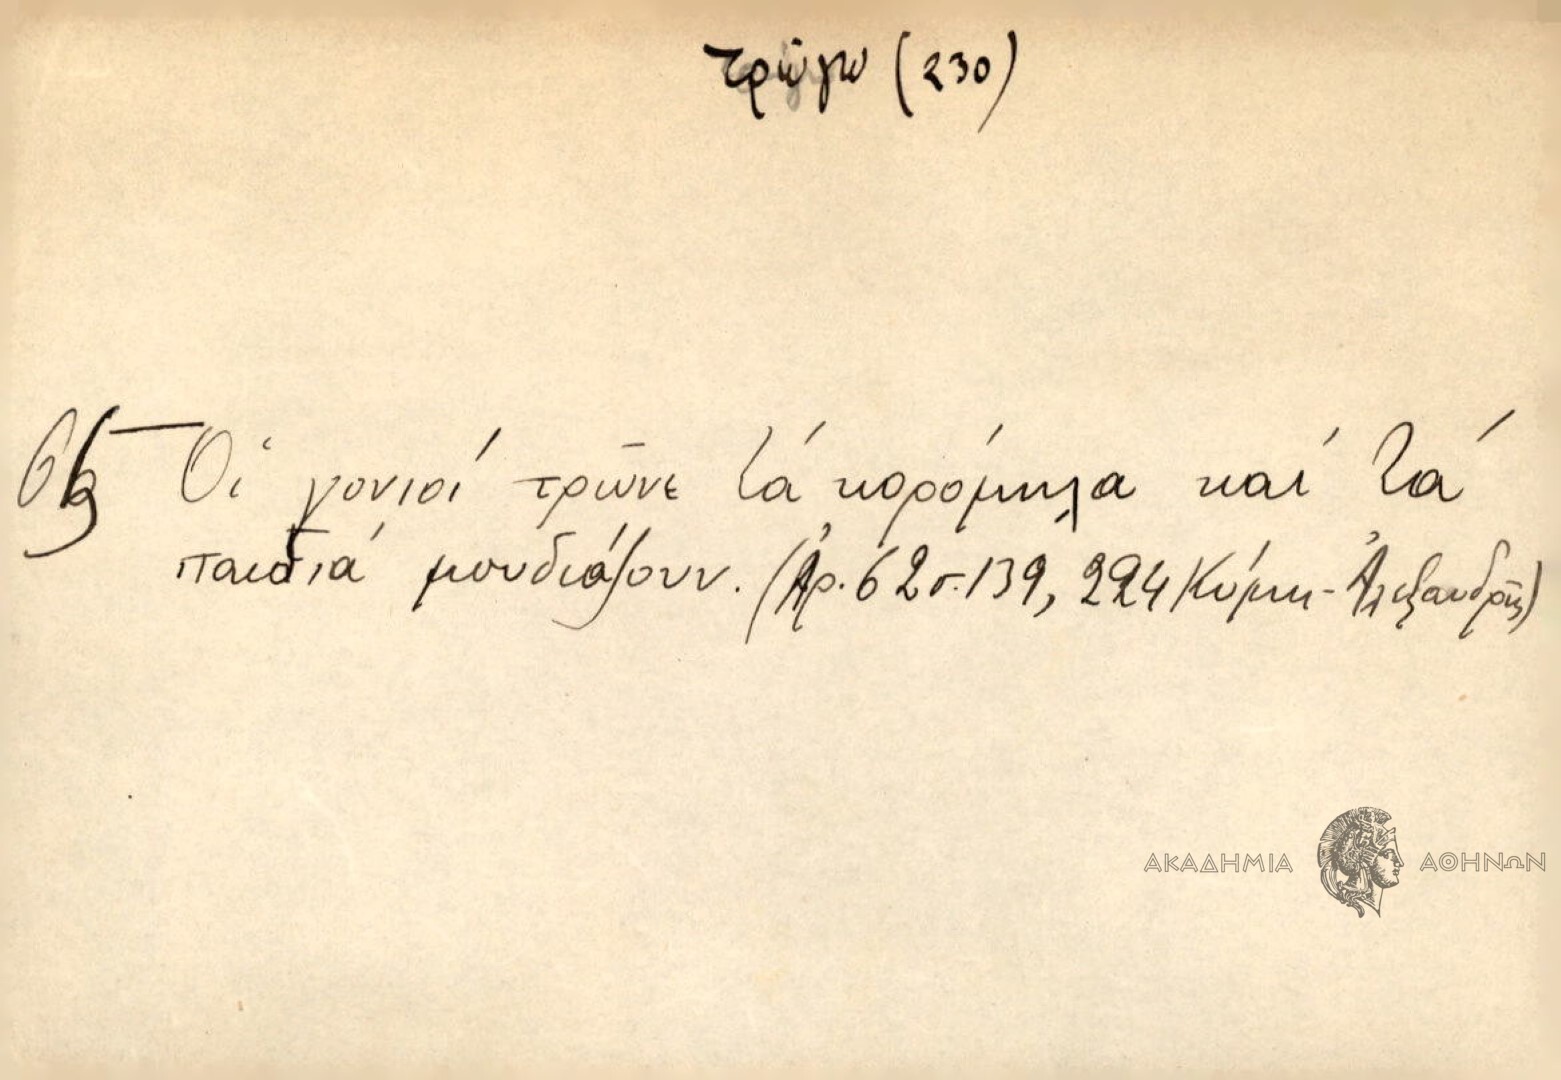 τρώγω (230)
Οἱ γονιοί τρῶνε τά κορόμηλα καί τά
παιδιά μουδιάζουν. (Ἀρ. 62 σ. 139, 224 Κύμη - Ἀλεξανδρῆς)
ΑΚΑΔΗΜΙΑ ΑΘΗΝΩΝ